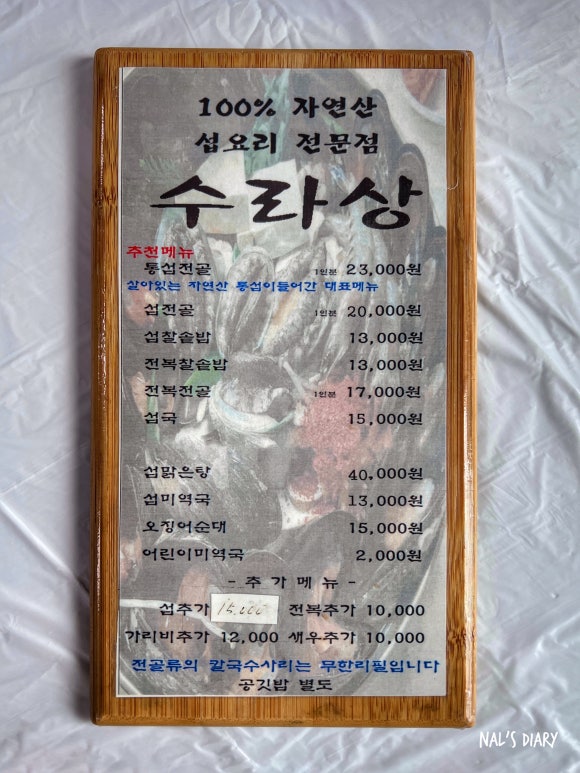 100% 자연산
섭요리 전문점
수라상
추천메뉴
통섭전골 1인분 23,000원
살아있는 자연산 통섭이들어간 대표메뉴
섭전골 1인분 20,000원
섭찰솥밥 13,000원
전복찰솥밥 13,000원
전복전골 1인분 17,000원
섭국 15,000원
섭맑은탕 40,000원
섭미역국 13,000원
오징어순대 15,000원
어린이미역국 2,000원
- 추 가 메 뉴 -
섭추가 15,000 전복추가 10,000
가리비추가 12,000 새우추가 10,000
전골류의 칼국수사리는 무한리필입니다
공깃밥 별도
NAL'S DIARY